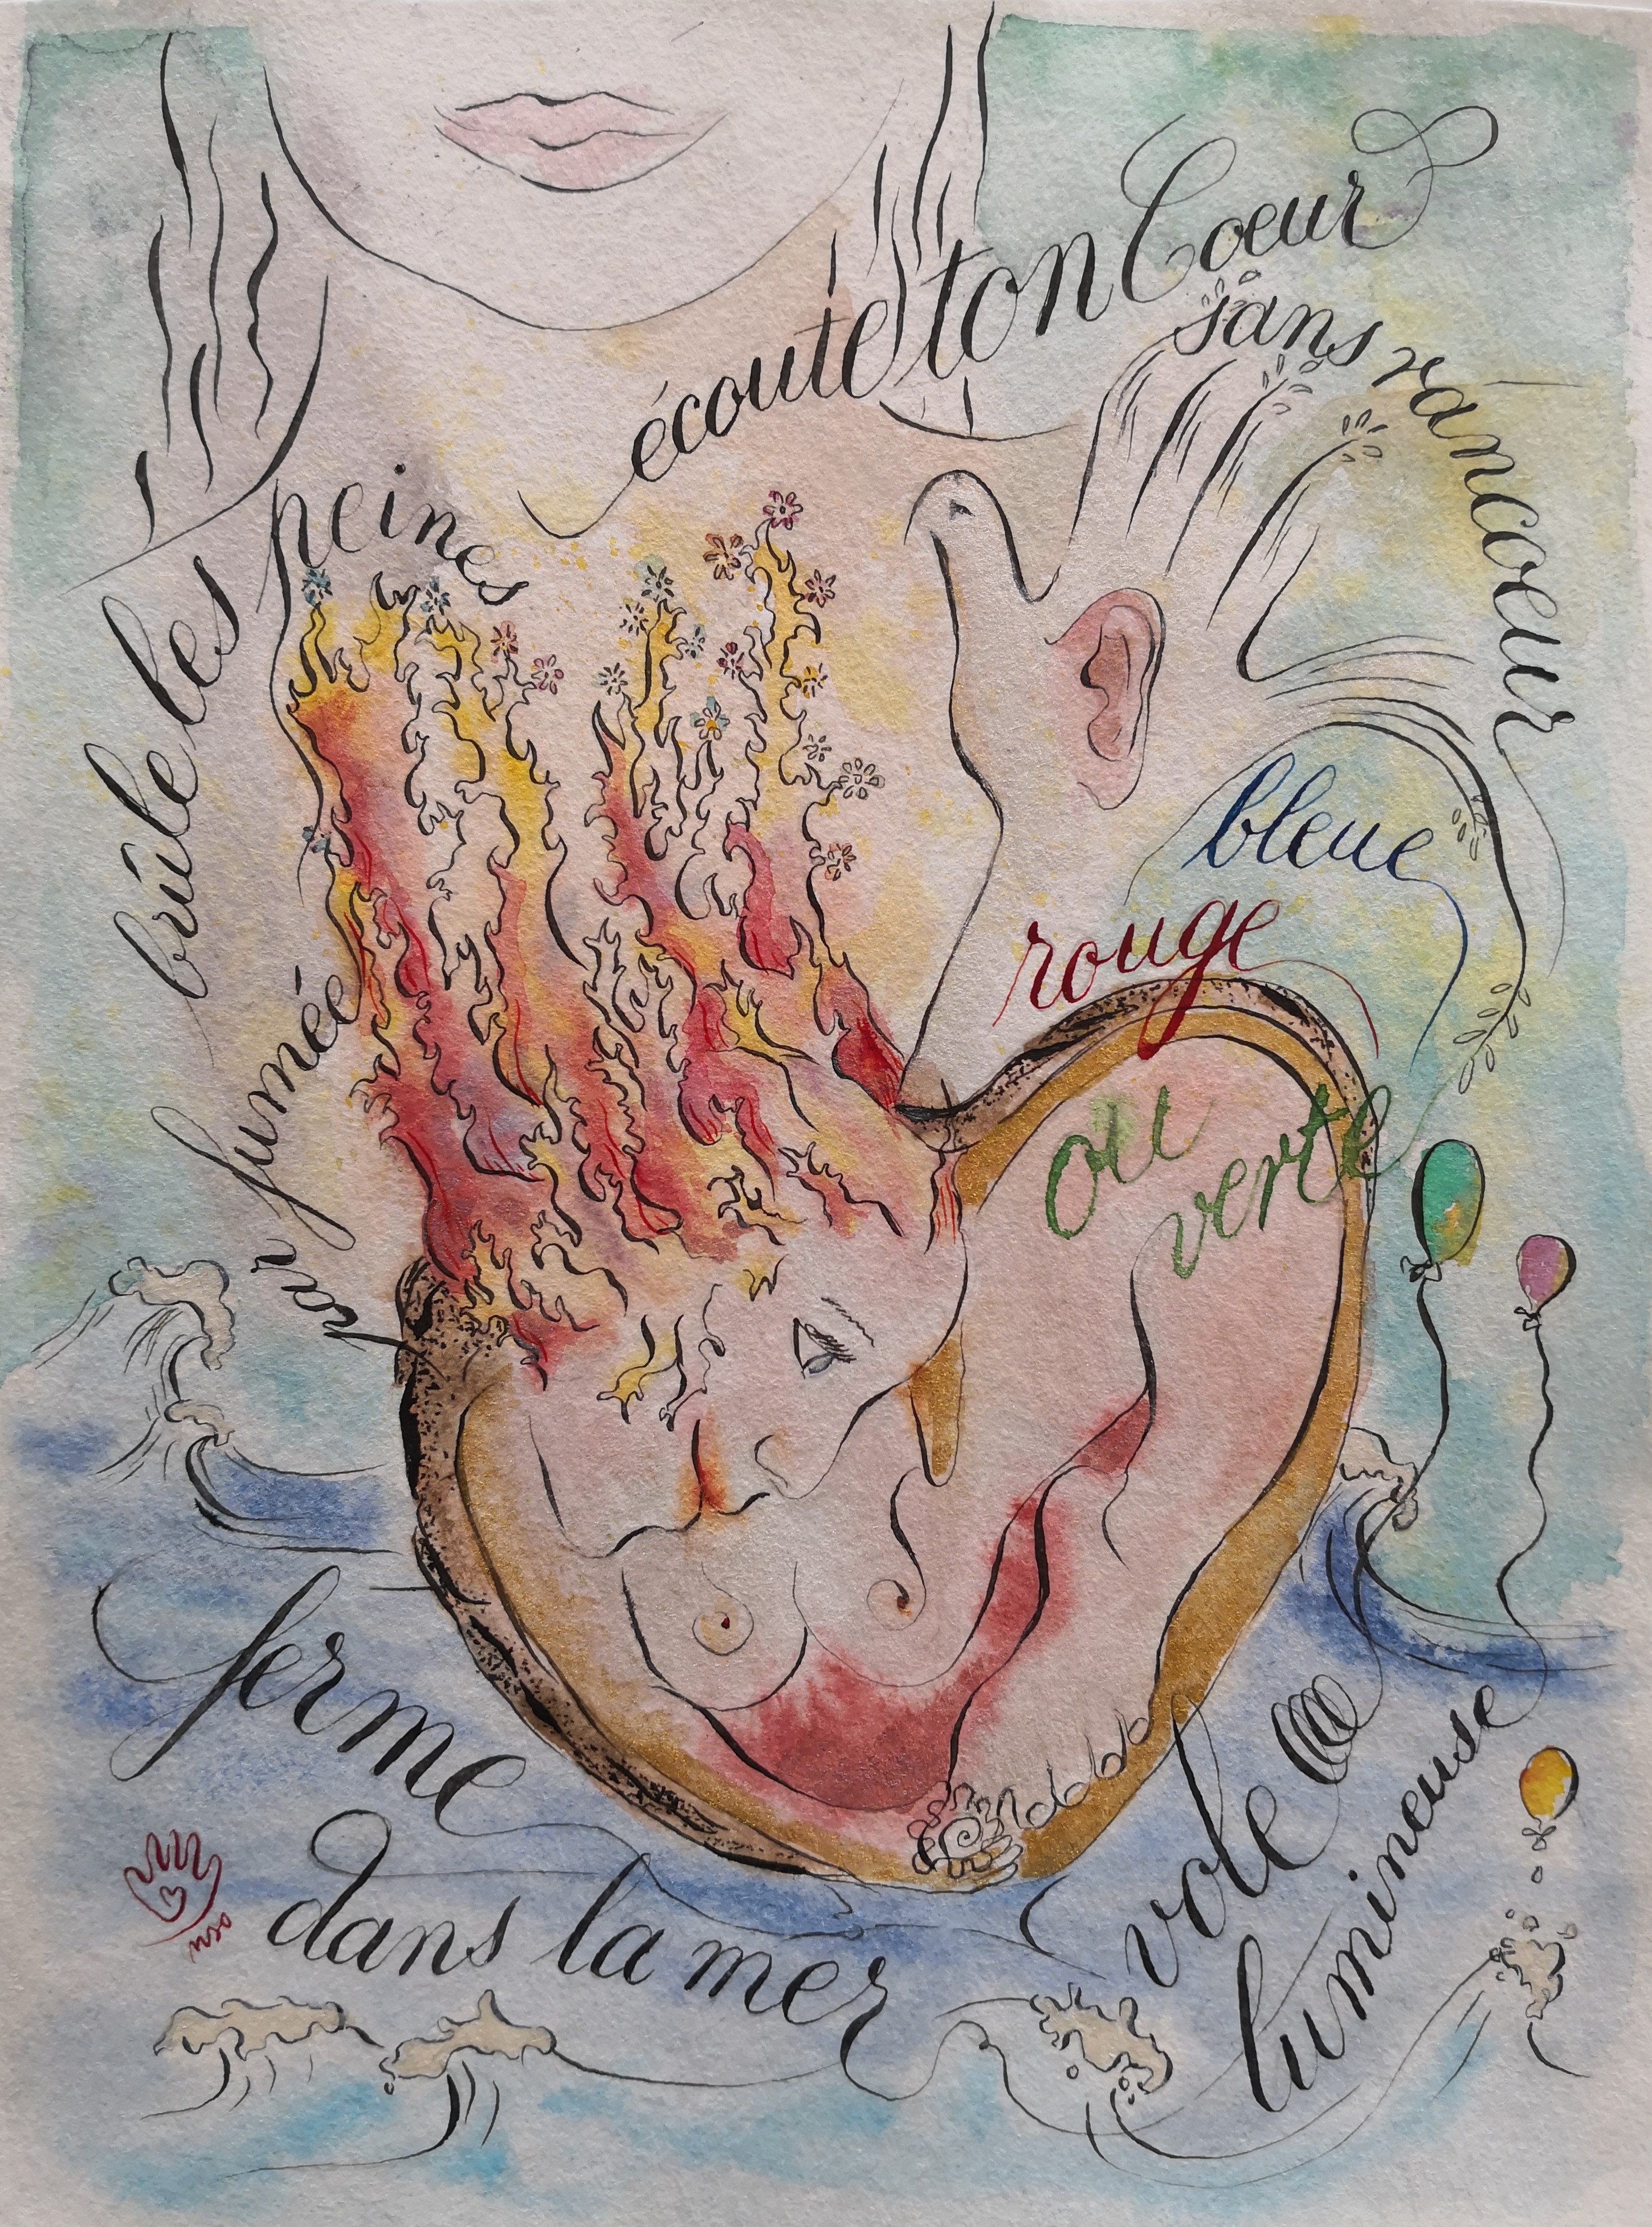 écoute ton Coeur
sans rancoeur
brûle les peines
par fumée
bleue
rouge
ou
verte
ferme
dans la mer
vole
lumineuse